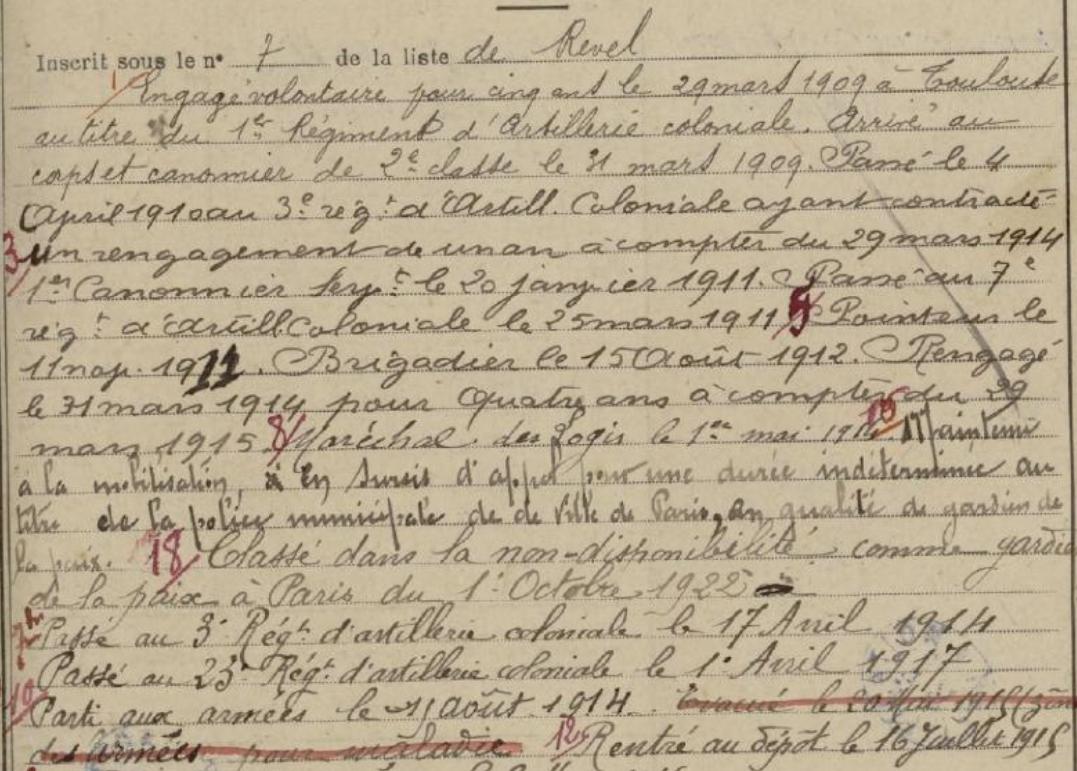 Inscrit sous le n° 7 de la liste de Revel
1/ Engagé volontaire pour cinq ans le 29 mars 1909 à Toulouse
au titre du 1er Régiment d'Artillerie coloniale. Arrivé au
corps et canonnier de 2e classe le 31 mars 1909. Passé le 4
April 1910 au 3e régt d'Artill. Coloniale ayant contracté
3/ un rengagement de un an à compter du 29 mars 1914
1er Canonnier le 20 janvier 1911. Passé au 7e
régt d'Artill Coloniale le 25 mars 1911 5/ Pointeur le
11 nov. 1911. Brigadier le 15 Août 1912. Rengagé
le 31 mars 1914 pour Quatre ans à compter du 29
mars 1915 8/ Maréchal des Logis le 1er mai 1914. 17/ Maintenu
à la mobilisation, en sursis d'appel pour une durée indéterminée au
titre de la police municipale de de Ville de Paris, en qualité de gardien de
la paix. 18/ Classé dans la non-disponibilité comme gardie
de la paix à Paris du 1er Octobre 1922
7/ Passé au 3e Régt d'artillerie coloniale le 17 Avril 1914
Passé au 23e Régt d'artillerie coloniale le 1er Avril 1917
10/ Parti aux armées le 11 août 1914. Evacué le 20 Mai 1915 (zone
des armées pour maladie 12/ Rentré au dépôt le 16 Juillet 1915